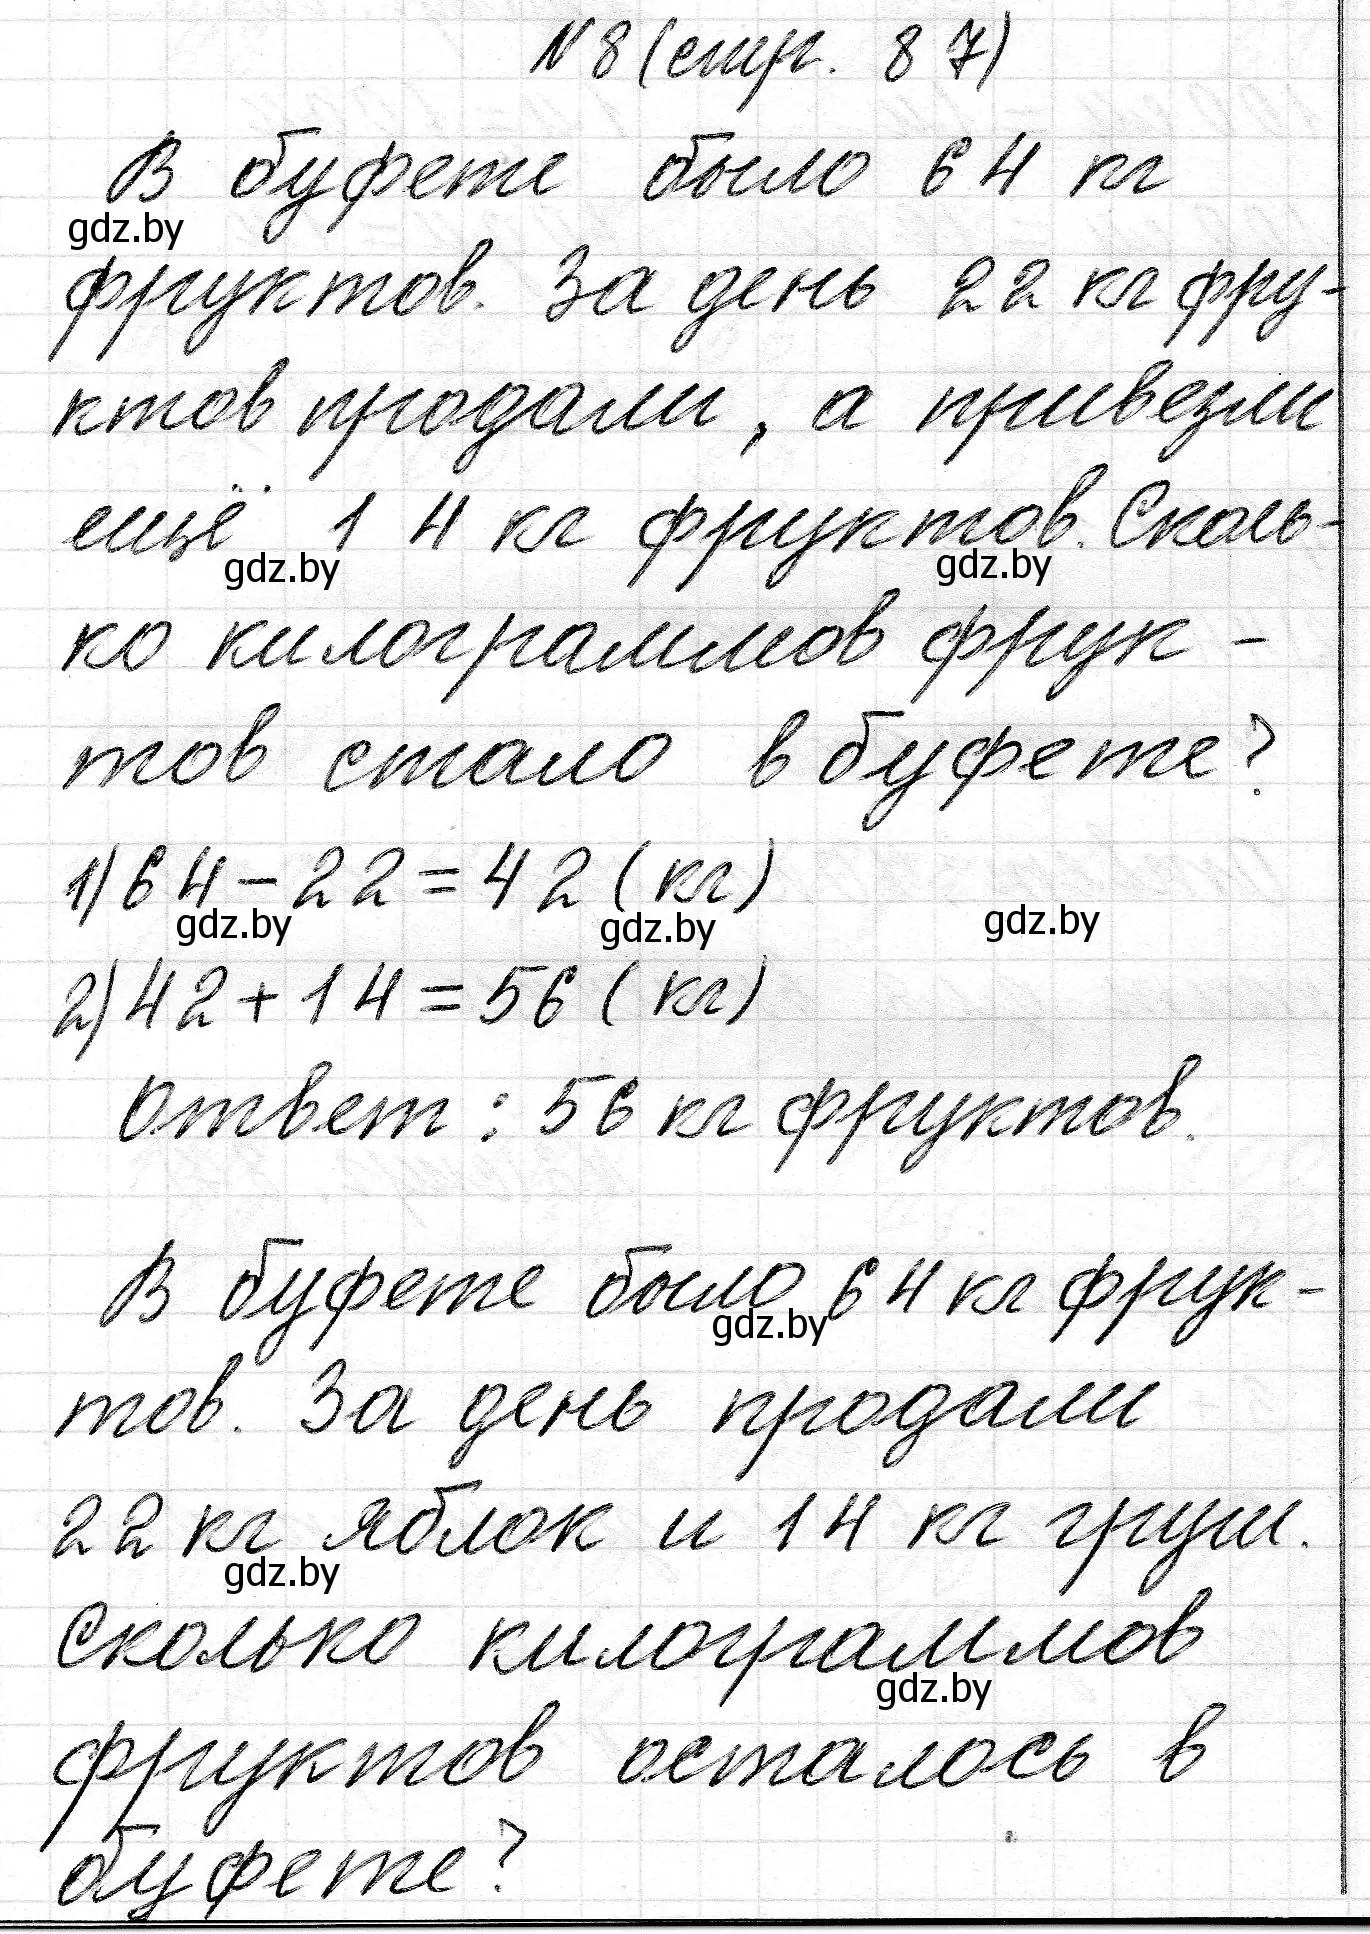 №8 (стр. 87)
В буфете было 64 кг
gdz.by
фруктов. За день 22 кг фру-
ктов продали, а привезли
ещё 14 кг фруктов. Сколь-
gdz.by gdz.by
ко килограммов фрук-
тов стало в буфете?
1) 64 - 22 = 42 (кг)
gdz.by gdz.by gdz.by
2) 42 + 14 = 56 (кг)
Ответ: 56 кг фруктов.
В буфете было 64 кг фрук-
gdz.by
тов. За день продали
22 кг яблок и 14 кг груш.
gdz.by
Сколько килограммов
gdz.by
фруктов осталось в
буфете?